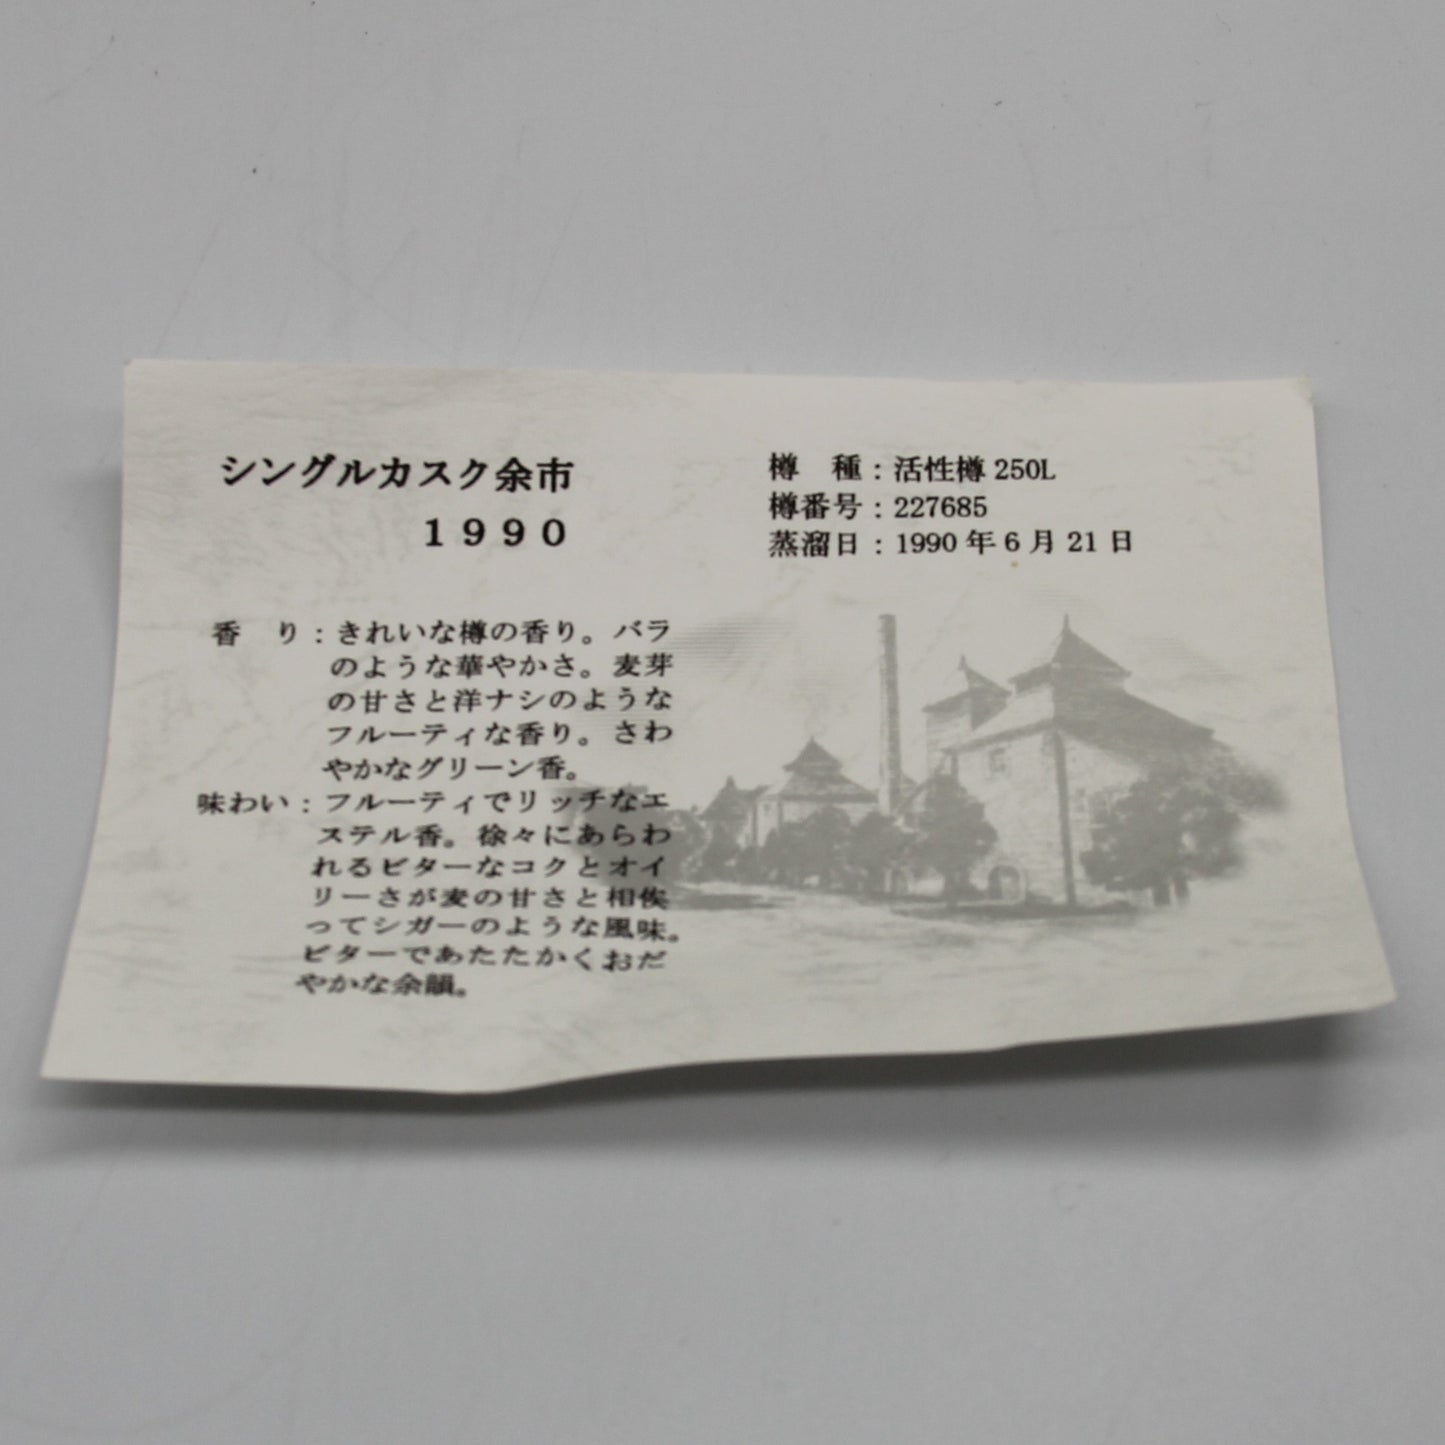 シングルカスク余市
1990
樽　種：活性樽 250L
樽番号：227685
蒸溜日：1990 年 6 月 21 日
香　り：きれいな樽の香り。バラ
のような華やかさ。麦芽
の甘さと洋ナシのような
フルーティな香り。さわ
やかなグリーン香。
味わい：フルーティでリッチなエ
ステル香。徐々にあらわ
れるビターなコクとオイ
リーさが麦の甘さと相俟
ってシガーのような風味。
ビターであたたかくおだ
やかな余韻。